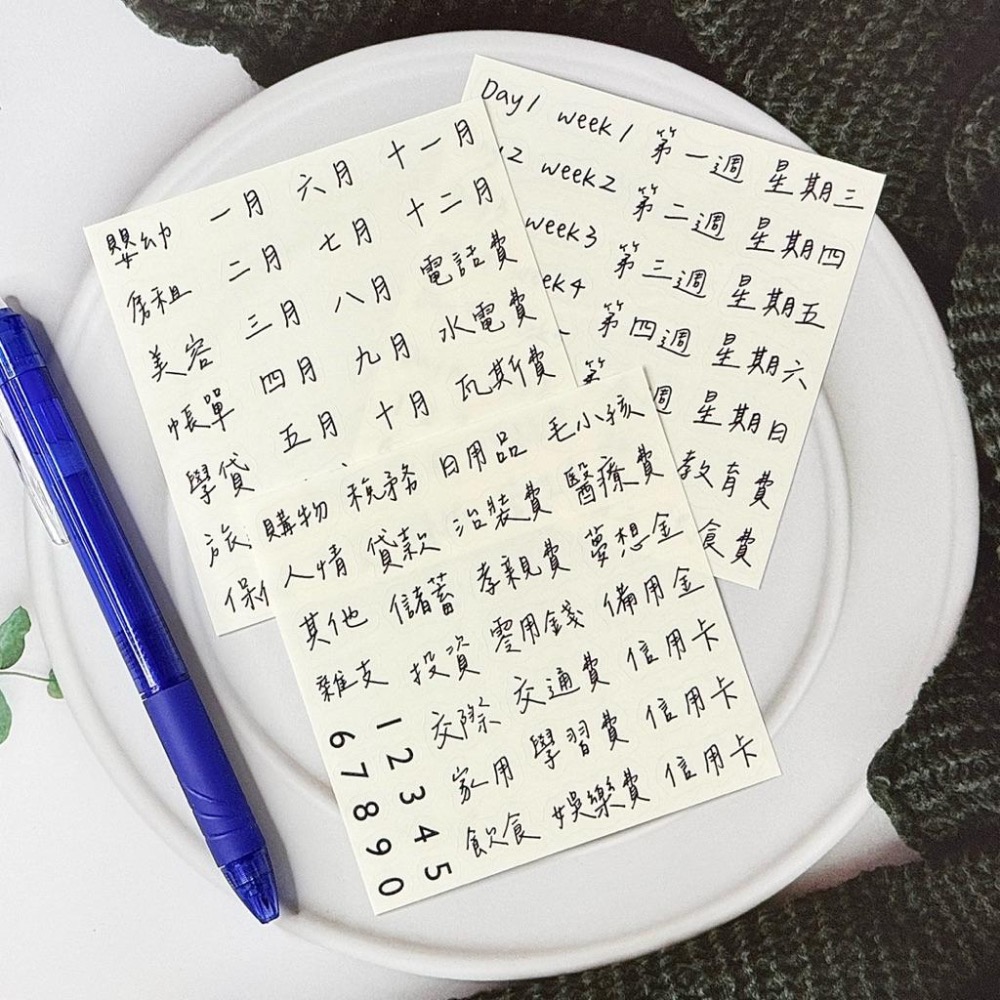 嬰幼 一月 六月 十一月
房租 二月 七月 十二月
美容 三月 八月 電話費
帳單 四月 九月 水電費
學貸 五月 十月 瓦斯費
旅
保
Day1 week1 第一週 星期三
2 week2 第二週 星期四
week3 第三週 星期五
ek4 第四週 星期六
第 週 星期日
教育費
食費
購物 稅務 日用品 毛小孩
人情 貸款 治裝費 醫療費
其他 儲蓄 孝親費 夢想金
雜支 投資 零用錢 備用金
交際 交通費 信用卡
家用 學習費 信用卡
飲食 娛樂費 信用卡
1 2 3 4 5
6 7 8 9 0